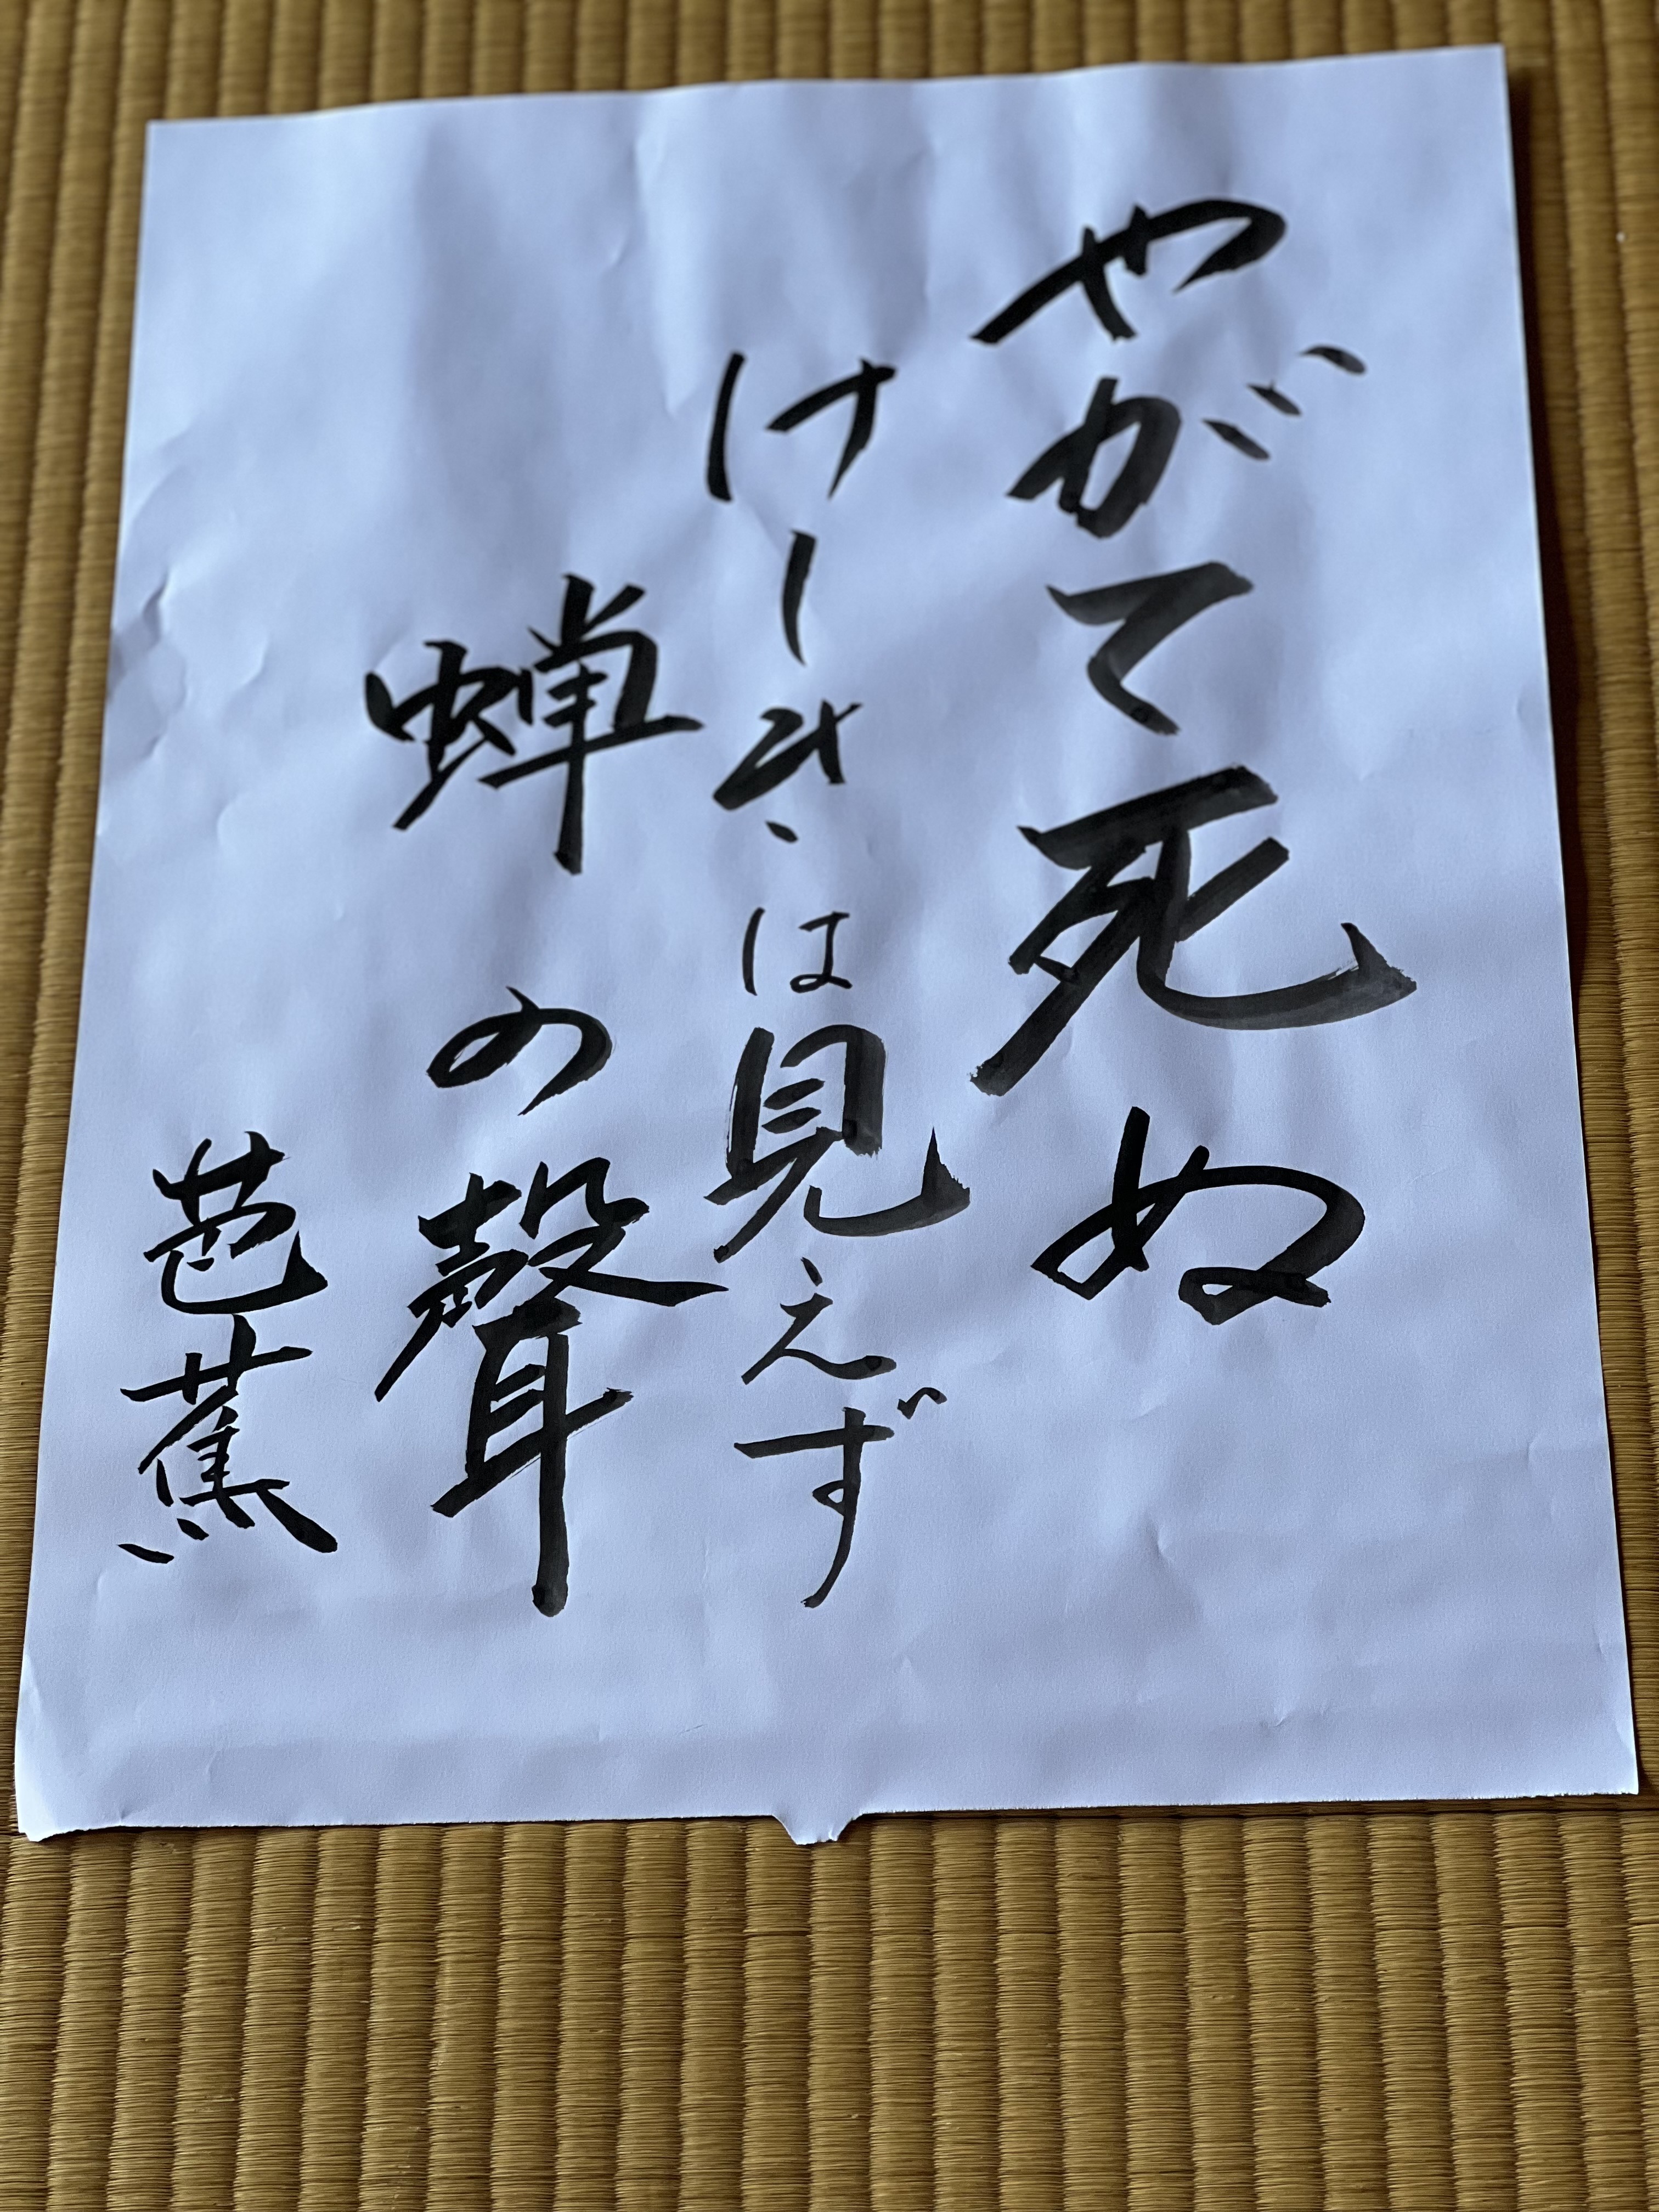 やがて死ぬ
けしきは見えず
蝉の聲
芭蕉